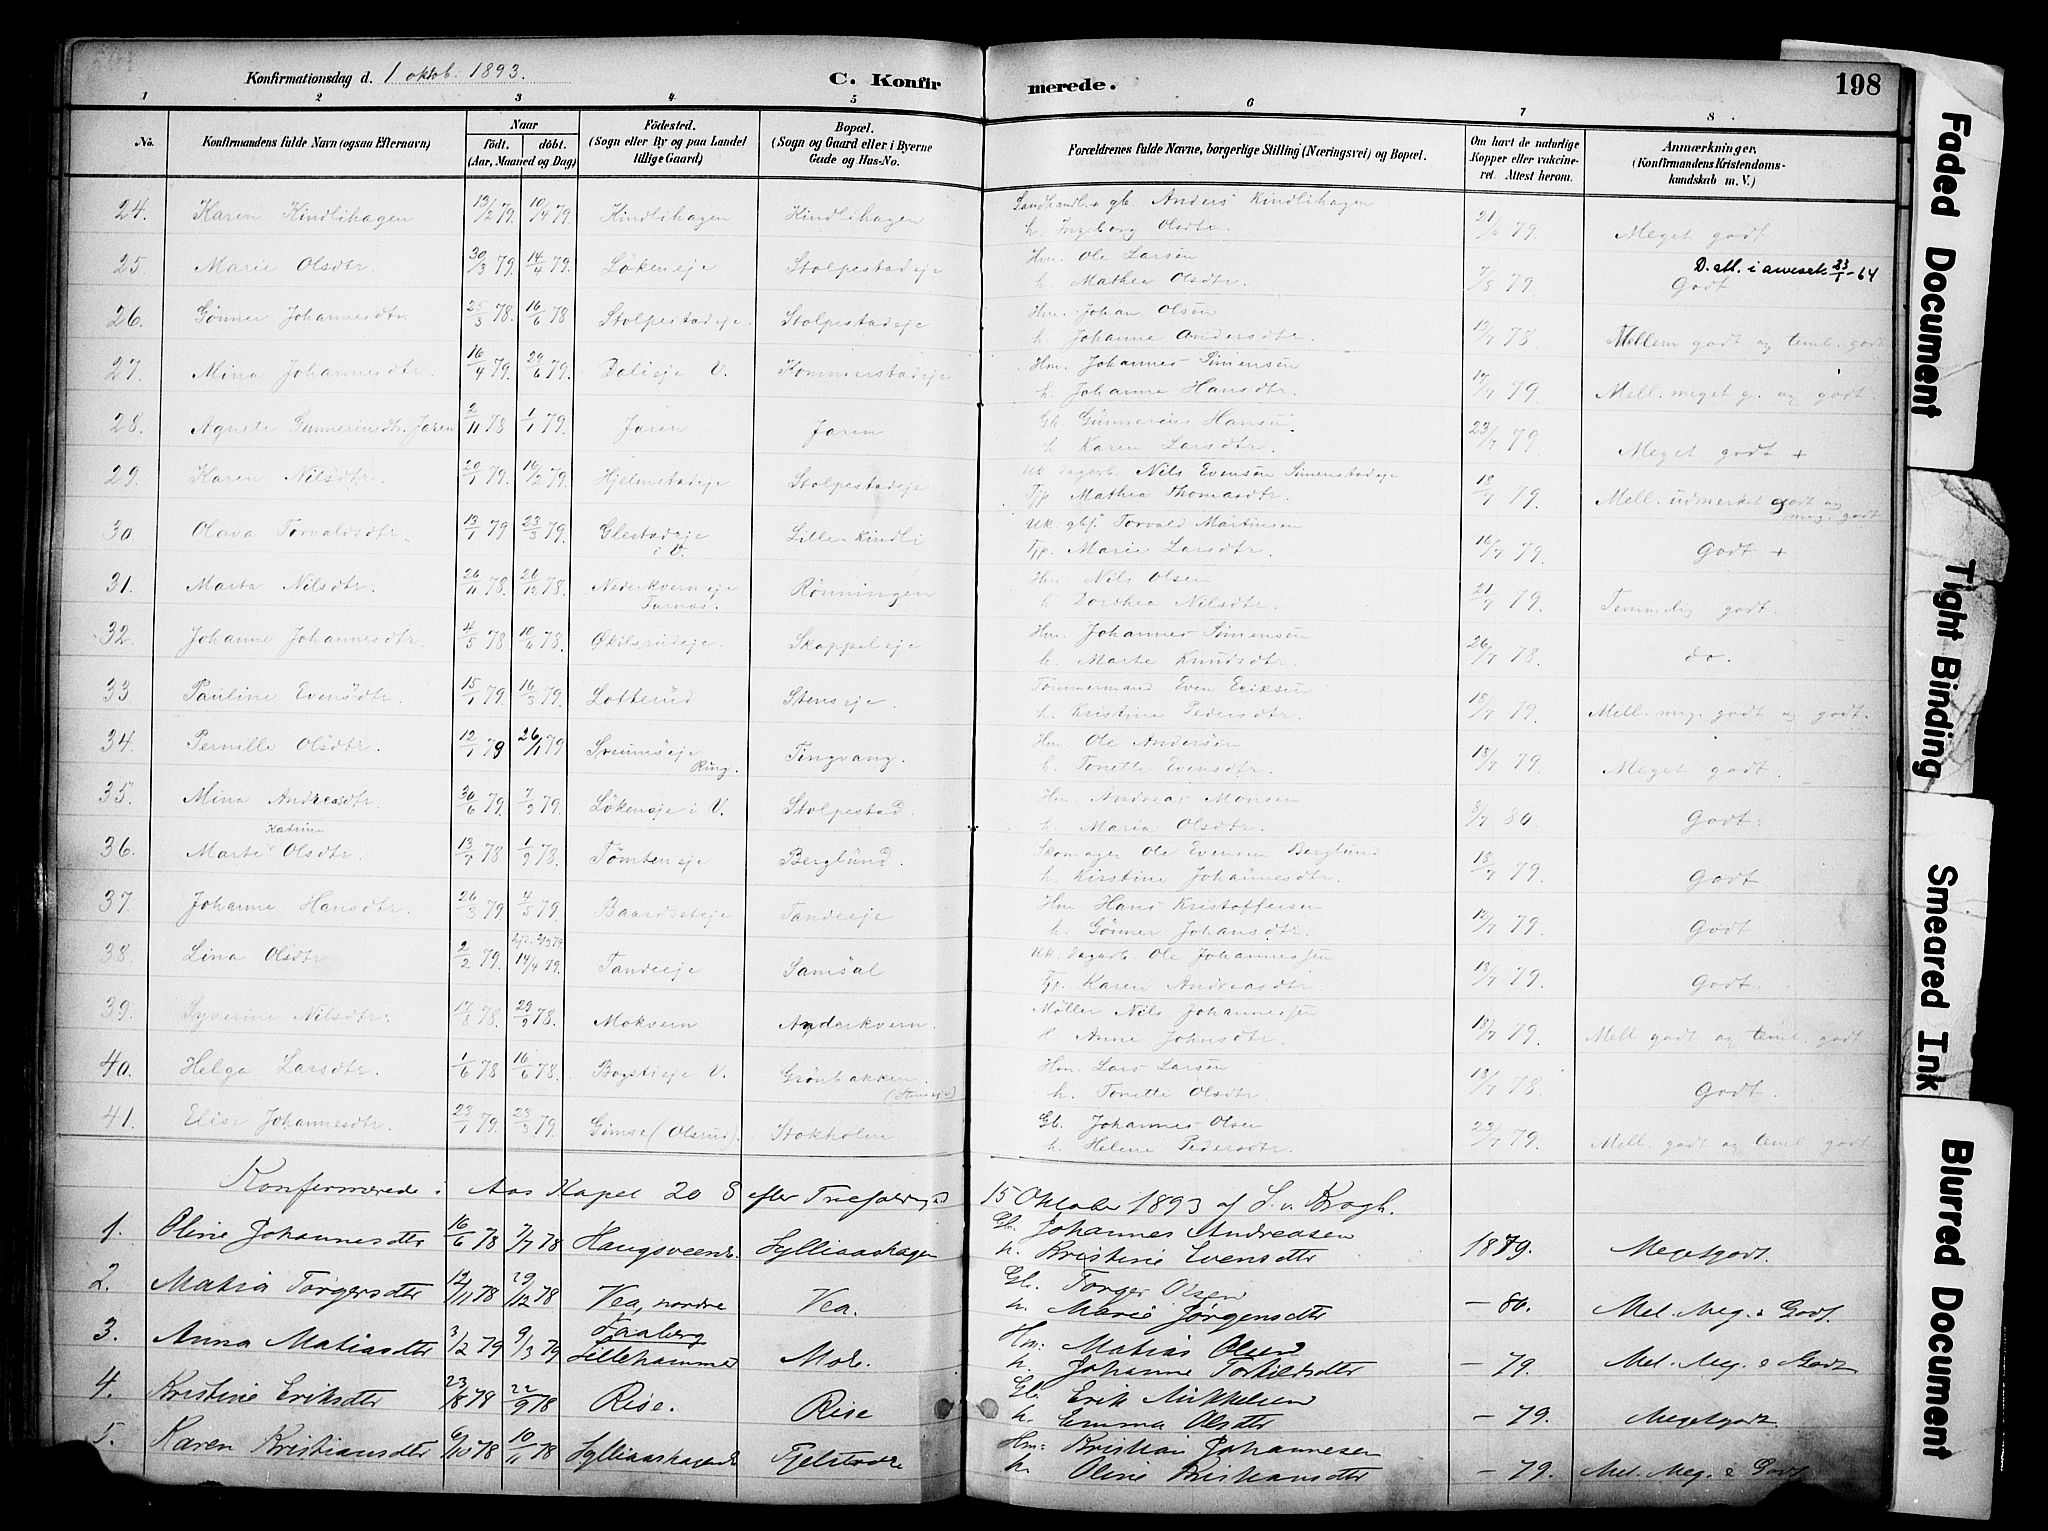 Konfirmationsdag d. 1 oktob. 1893. C. Konfirmerede. 198
1 2 3 4 5 6 7 8
No. Konfirmandens fulde Navn (ogsaa Efternavn) Naar födt. döbt. (Aar, Maaned og Dag) Födested. (Sogn eller By og paa Landet tillige Gaard) Bopæl. (Sogn og Gaard eller i Byerne Gade og Hus-No. Forældrenes fulde Navne, borgerlige Stilling (Næringsvei) og Bopæl. Om havt de naturlige Kopper eller vakcineret. Attest herom. Anmærkninger. (Konfirmandens Kristendomskundskab m. V.)
24. Karen Kindlihagen 13/2 79. 10/4 79. Kindlihagen Kindlihagen Landhandler gb. Anders Kindlihagen
h. Ingeborg Olsdtr. 21/6 79. Meget godt
25. Marie Olsdtr. 30/3 79. 14/4 79. Lökeneje Stolpestadeje Hm. Ole Larsen D. att. i 23/1-64
h. Mathea Olsdtr. 7/8 79. Godt
26. Gönner Johannesdtr. 25/3 78. 16/6 78 Stolpestadeje. Stolpestadeje Hm. Johan Olsen
h. Johanne Andersdtr. 13/7 78 Mellem godt og teml. godt
27. Mina Johannesdtr. 16/4 79. 29/6 79. Dalieje V. Kommerstadeje Hm. Johannes Simensen
h. Johanne Hansdtr. 17/7 79. Mell. meget g. og godt.
28. Agnete Gunneriusdtr. Jaren 2/11 78 1/1 79. Jaren Jaren Gb. Gunnerius Hansen
h. Karen Larsdtr. 23/7 79. Meget godt +
29. Karen Nilsdtr. 20/1 79. 16/2 79. Hjelmstadeje Stolpestadeje Uk. dagarb. Nils Evensen Simenstadeje
Tjp. Mathea Thomasdtr. 18/7 79. Mell. udmerket godt og meg. godt
30 Olava Torvaldsdtr. 13/1 79 23/3 79. Glestadeje i V. Lille-Kindli Uk. gbs. Torvald Martinsen
Tjp. Marie Larsdtr. 16/7 79. Godt +
31. Marta Nilsdtr. 26/11 78. 26/12 78. Nederkverneje Furnes. Rönningen Hm. Nils Olsen
h. Dorthea Nilsdtr. 21/7 79. Temmelig godt.
32. Johanne Johannesdtr. 4/5 78 10/6 78. Økilsrudeje. Skappeleje Hm. Johannes Simensen
h. Marte Knudsdtr. 26/7 78. do.
33 Pauline Evensdtr. 15/1 79. 16/3 79. Lotterud Stenseje. Tömmermand Even Eriksen
h. Kristine Pedersdtr. 18/7 79. Mell. meg. godt og godt.
34. Pernille Olsdtr. 12/1 79 26/1 79 Sveumseje Ring. Tingvang. Hm. Ole Andersen
h. Tonette Evensdtr. 13/7 79. Meget godt.
35. Mina Andreasdtr. 30/6 79. 7/9 79. Lökeneje i V. Stolpestad. Hm. Andreas Monsen
h. Maria Olsdtr. 3/7 80. Godt.
36. Marte Katrine Olsdtr. 13/7 78 1/9 78. Tömteneje Berglund. Skomager Ole Evensen Berglund
h. Kirstine Johannesdtr. 18/7 79. Godt
37. Johanne Hansdtr. 26/3 79. 4/5 79. Baardseteje Tandeeje Hm. Hans Kristoffersen
h. Gönner Johansdtr. 12/7 79. Godt
38. Lina Olsdtr. 2/2 79. 14/4 79. Tandeeje Samsal Uk. dagarb. Ole Johannessen
Tjp. Karen Andreasdtr. 13/7 79. Godt.
39. Syverine Nilsdtr. 17/8 78. 29/9 78. Mokvern Anderkvern. Möller Nils Johannessen
h. Anne Johnsdtr. 18/7 79. Mell. godt og teml. godt
40. Helga Larsdtr. 1/6 78 16/6 78. Bogstieje V. Grönbakken (Stenseje) Hm. Lars Larsen
h. Tonette Olsdtr. 13/7 78. Godt.
41. Elise Johannesdtr. 23/1 79. 23/3 79. Gimse (Olsrud). Stokholm Gb. Johannes Olsen
h. Helene Pedersdtr. 23/7 79. Mell. godt og teml. godt
Konfirmerede i Aas Kapel 20 S. efter Trefoldigh. 15 Oktober 1893 af S. v. Krogh.
1. Oline Johannesdtr 16/6 78 7/7 78 Haugsveen Sylliaashagen Gb. Johannes Andreasen
h. Kristine Evensdtr 1879. Megetgodt.
2. Matia Torgersdtr 12/11 78 29/12 78 Vea, nordre Vea. Gb. Torger Olsen
h. Marie Jørgensdtr — 80. Mel. Meg. & Godt.
3. Anna Matiasdtr 3/2 79 9/3 79 Faaberg Lillehammer Moe. Hm: Matias Olsen
h. Johanne Torkildsdtr — 79. Mel. Meg. & Godt
4. Kristine Eriksdtr 23/8 78 22/9 78 Rise. Rise Gb. Erik Mikkelsen
h. Emma Olsdtr — 79. Megetgodt.
5. Karen Kristiansdtr 6/10 78 10/11 78 Sylliaashagen Fjelstade Hm: Kristian Johannesen
h. Oline Kristiansdtr — 79. Mel. Meg. & Godt.
Faded Document
Tight Binding
Smeared Ink
Blurred Document